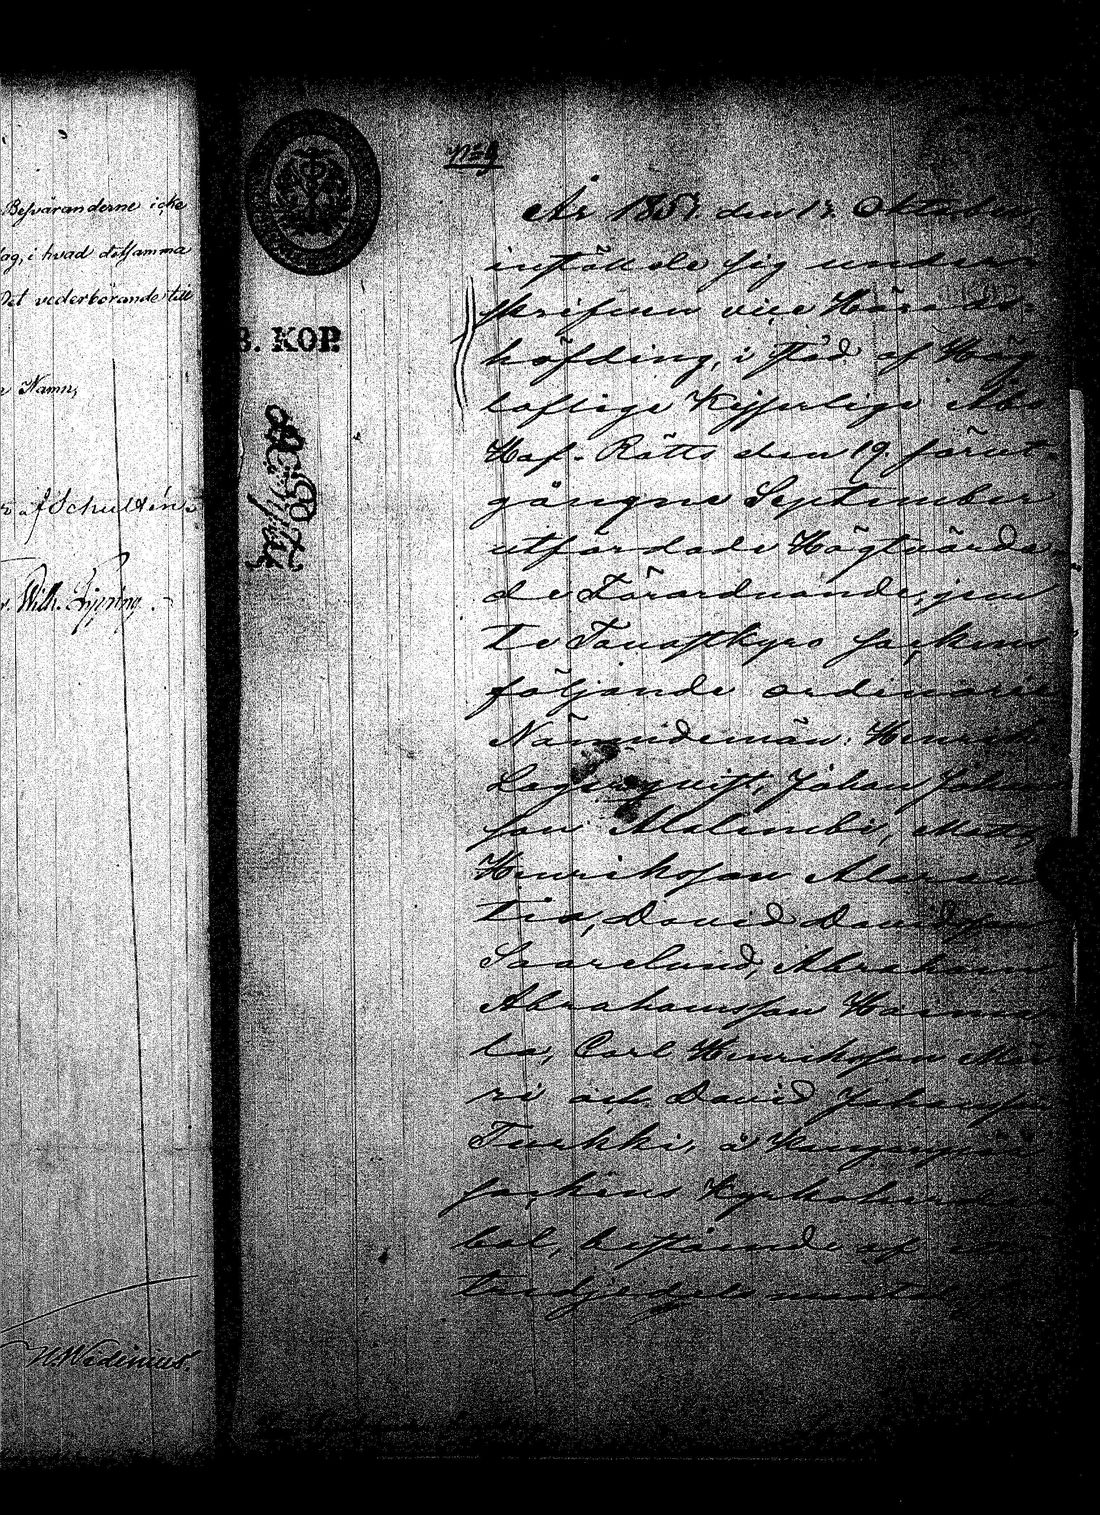 Besväranderne icke
lag, i hvad detsamma
Det vederbörande till
Namn,
af Schultén.
Wilh. Lipping.
N. Widenius.
B. KOP.
No 9
År 1857 den 13. Oktober,
inställde sig under-
skrifven vice Härads-
höfding, i stöd af Hög
loflige Kejserlige Åbo
Hof-Rätts den 19. förut-
gångne September
utfärdade Högtvörda-
de Förordnande, jem
te Tavastkyro sockens
följande ordinarie
Nämndemän: Henrik
Lagerqvist, Johan Johans
son Alalimbi, Matts
Henriksson Alaran
tio, David Davidsson
Saarelund, Abraham
Abrahamsson Harma
la, Carl Henriksson
ri och David Johansson
Turkki, å Kangasprä
sockens Kyrkoherde
bol, bestående af en
tredjedels mantal